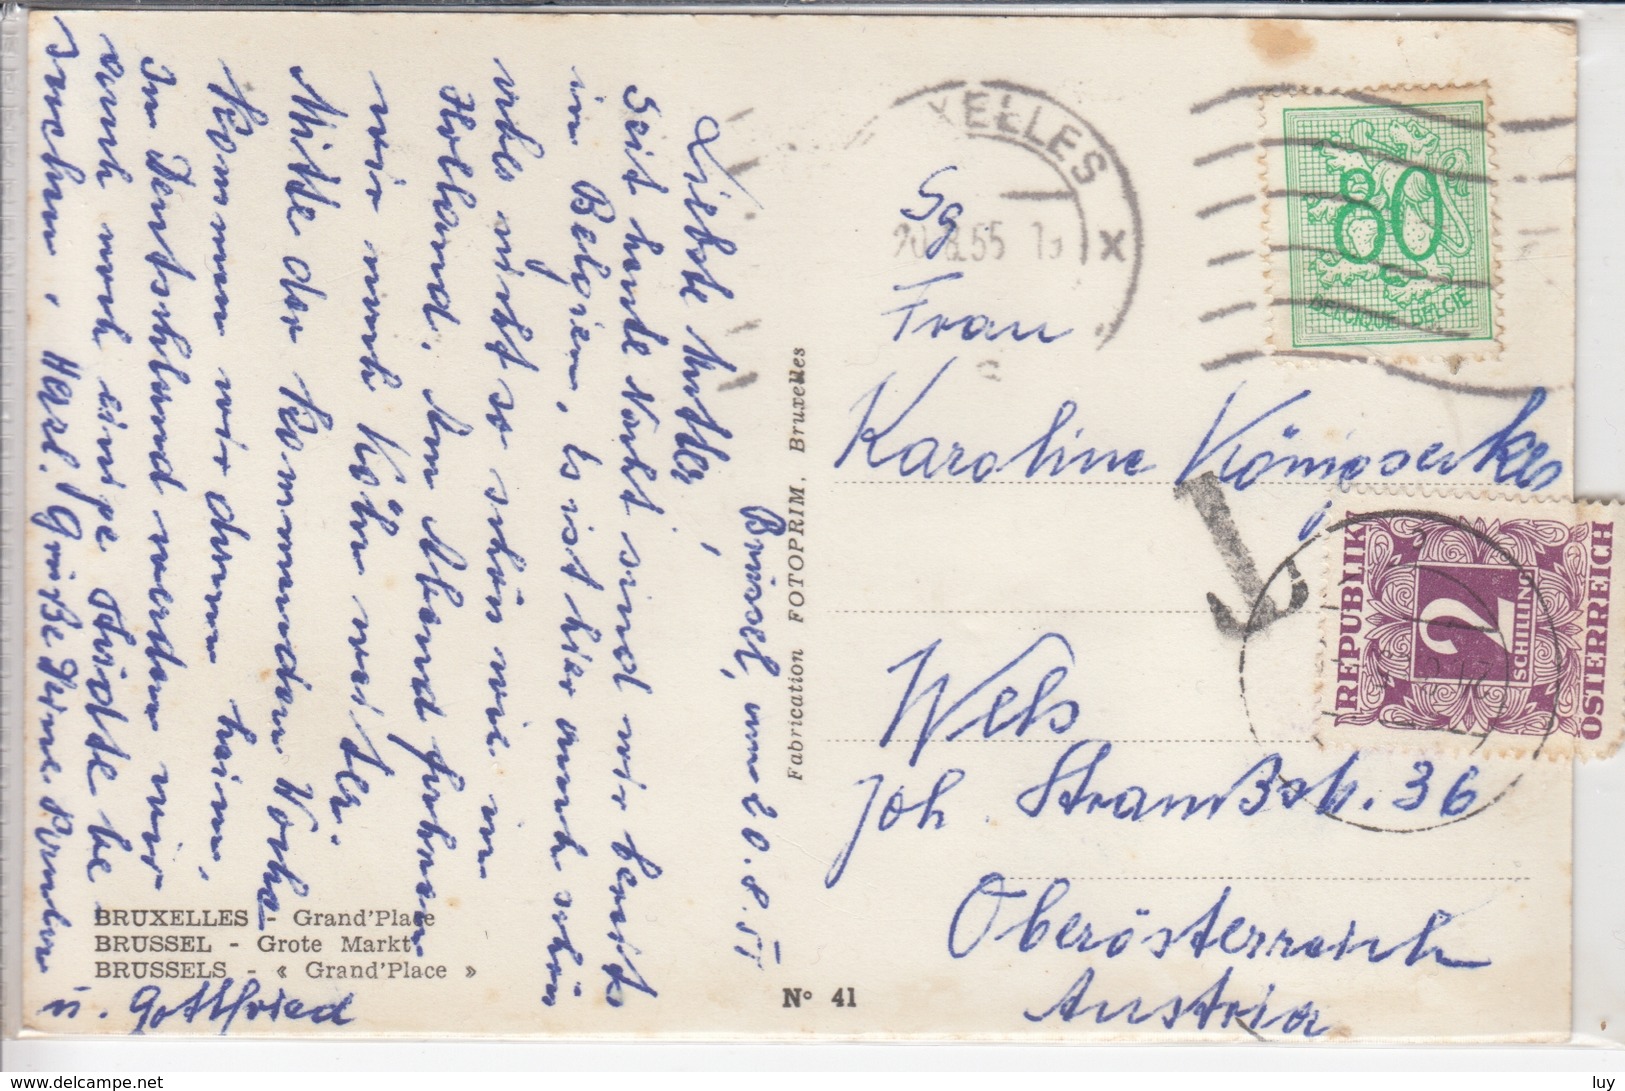 Brüssel, am 20.8.55
Liebste Mutter!
Seit heute Nacht sind wir bereits
in Belgien. Es ist hier auch schön
nicht so schön wie in
Holland. Am Abend fahren
wir nach Köln weiter.
Mitte der kommenden Woche
kommen wir dann heim.
In Deutschland werden wir
auch noch einige Städte be
suchen. Herzl. Grüße Deine
u. Gottfried
BRUXELLES - Grand'Place
BRUSSEL - Grote Markt
BRUSSELS - « Grand'Place »
Nº 41
Fabrication FOTOPRIM, Bruxelles
XELLES
55
X
80
BELGIQUE-BELGIE
Sg
Frau
Karoline Königseder
T
REPUBLIK
2
SCHILLING
ÖSTERREICH
Wels
Joh. Straußstr. 36
Oberösterreich
Austria
www.delcampe.net
luy